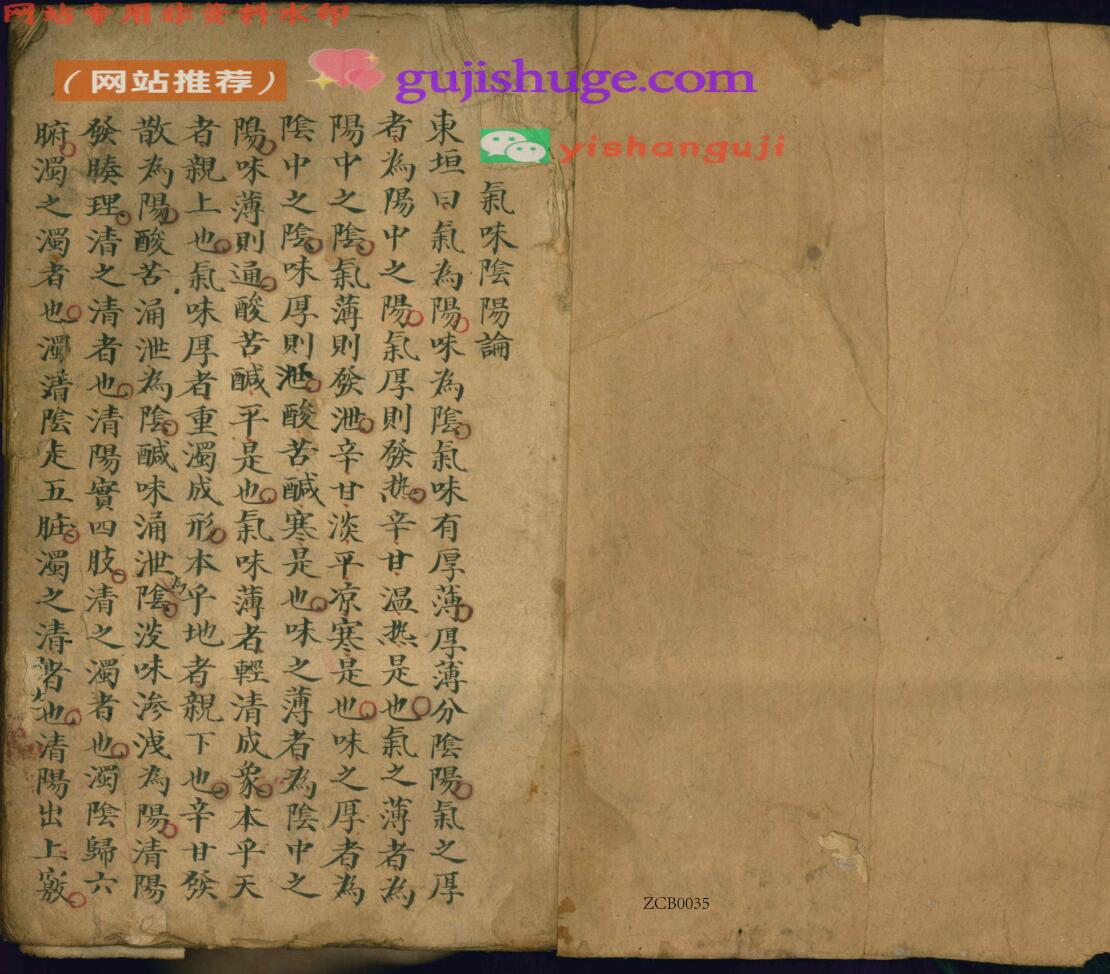 网站专用非资料水印
（网站推荐）
gujishuge.com
yishanguji
氣味陰陽論
東垣曰氣為陽味為陰氣味有厚薄厚薄分陰陽氣之厚
者為陽中之陽氣厚則發热辛甘溫热是也氣之薄者為
陽中之陰氣薄則發泄辛甘淡平凉寒是也味之厚者為
陰中之陰味厚則泄酸苦醎寒是也味之薄者為陰中之
陽味薄則通酸苦醎平是也氣味薄者輕清成象本乎天
者親上也氣味厚者重濁成形本乎地者親下也辛甘發
散為陽酸苦涌泄為陰醎味涌泄為陰淡味渗洩為陽清陽
發腠理清之清者也清陽實四肢清之濁者也濁陰歸六
腑濁之濁者也濁陰走五脏濁之清者也清陽出上竅
ZCB0035